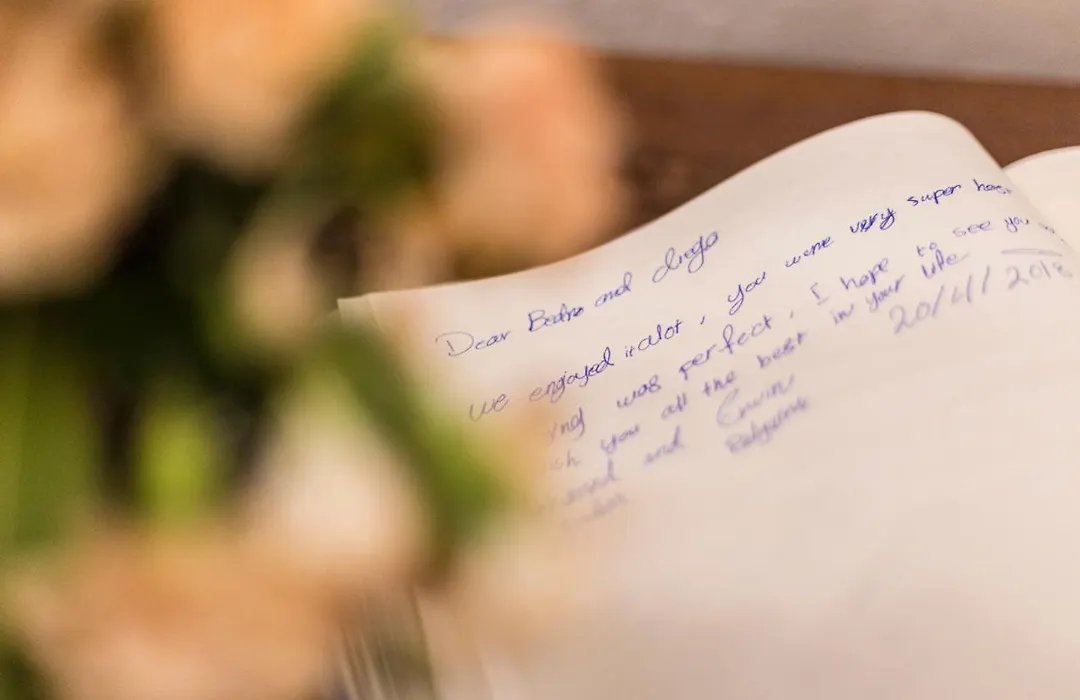 Dear Bedro and diego
We enjoyed it alot, you were very super hos
ing was perfect, I hope to see you
sh you all the best in your life
and Erwin 20/4/2018
Belgium